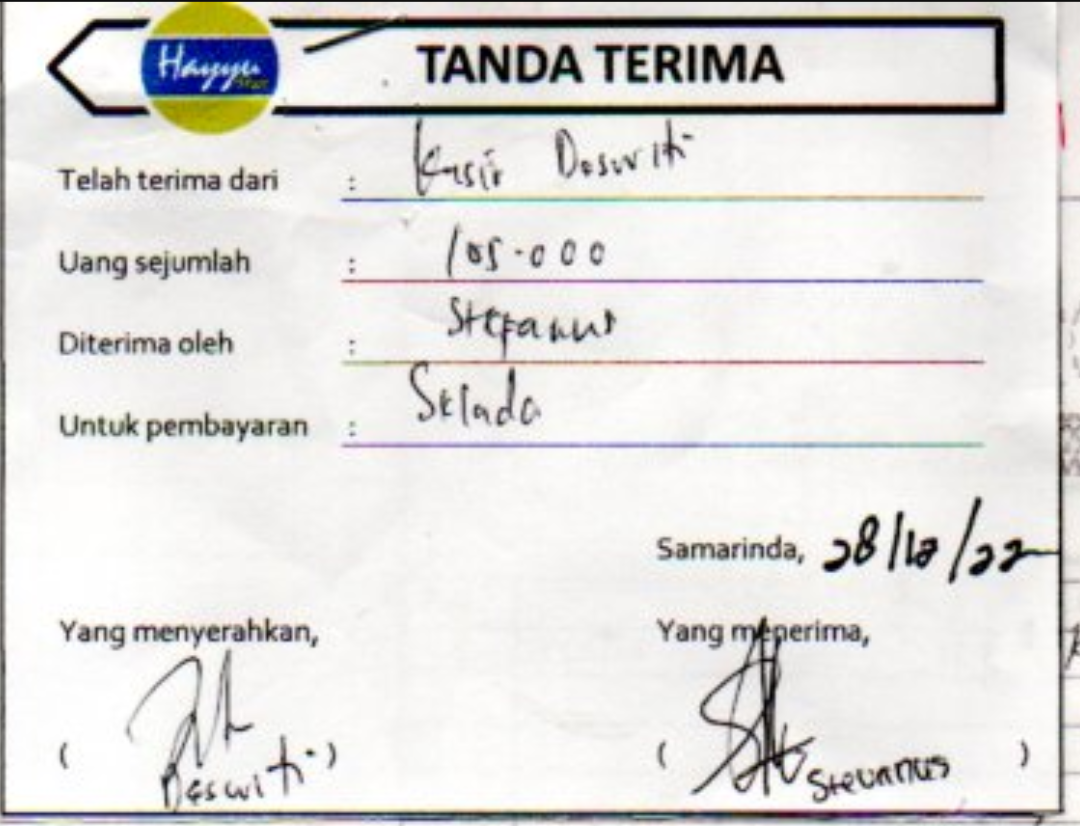 Hayyu
TANDA TERIMA
Telah terima dari : Kasir Deswiti
Uang sejumlah : 105.000
Diterima oleh : Stefanus
Untuk pembayaran : Selada
Samarinda, 28/12/22
Yang menyerahkan, Yang menerima,
( Deswiti ) ( Stevanus )